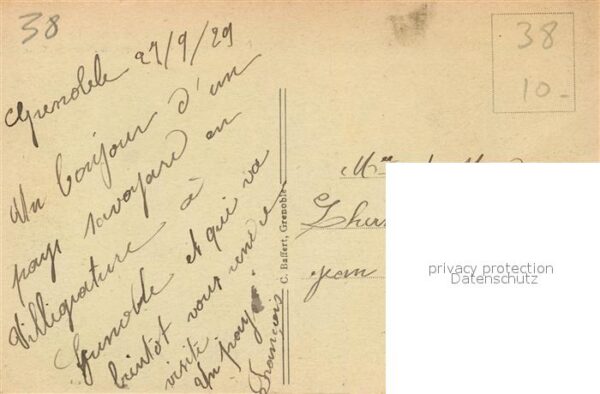 38
Grenoble 27/9/29
Un bonjour d'un
pays savoyard en
Villégiature à
Grenoble et qui va
bientot vous rendre
visite.
Un pays.
François
C. Baffert, Grenoble
38
10-
Jean
privacy protection
Datenschutz